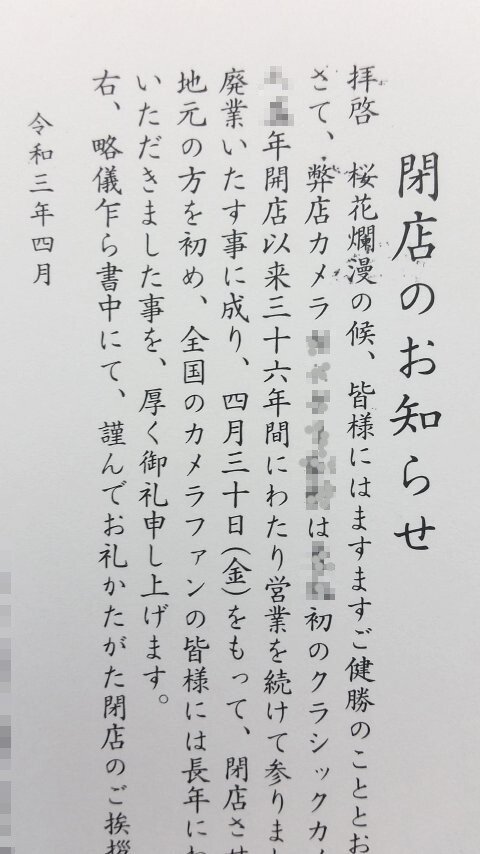 閉店のお知らせ
拝啓 桜花爛漫の候、皆様にはますますご健勝のこととお
さて、弊店カメラ は 初のクラシックカメ
年開店以来三十六年間にわたり営業を続けて参りまし
廃業いたす事に成り、四月三十日(金)をもって、閉店させ
地元の方を初め、全国のカメラファンの皆様には長年にわ
いただきました事を、厚く御礼申し上げます。
右、略儀乍ら書中にて、謹んでお礼かたがた閉店のご挨拶
令和三年四月